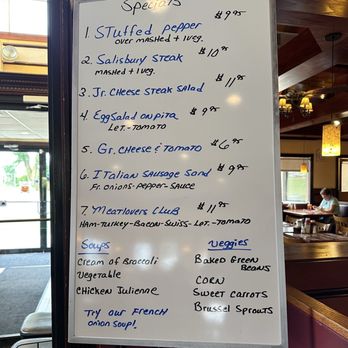 Specials
1 STuffed pepper $9.95
over MASHed + 1 veg.
2. Salisbury STeak $10.95
MASHed + 1 veg.
3. Jr. CHeese STeak SALad $11.95
4 EggSalad on pita $9.95
LeT.-Tomato
5. Gr. CHeese & Tomato $6.95
6. ITalian SAusage Sand $9.95
Fr. onions-Pepper-SAuce
7. MeaTlovers CLub $11.95
HAM-Turkey-Bacon-Swiss-LeT.-TomaTo
Soups
Cream of Broccoli
Vegetable
CHicken Julienne
Try our French
onion Soup!
Veggies
BAKed Green
Beans
CORN
SweeT CarroTs
Brussel Sprouts